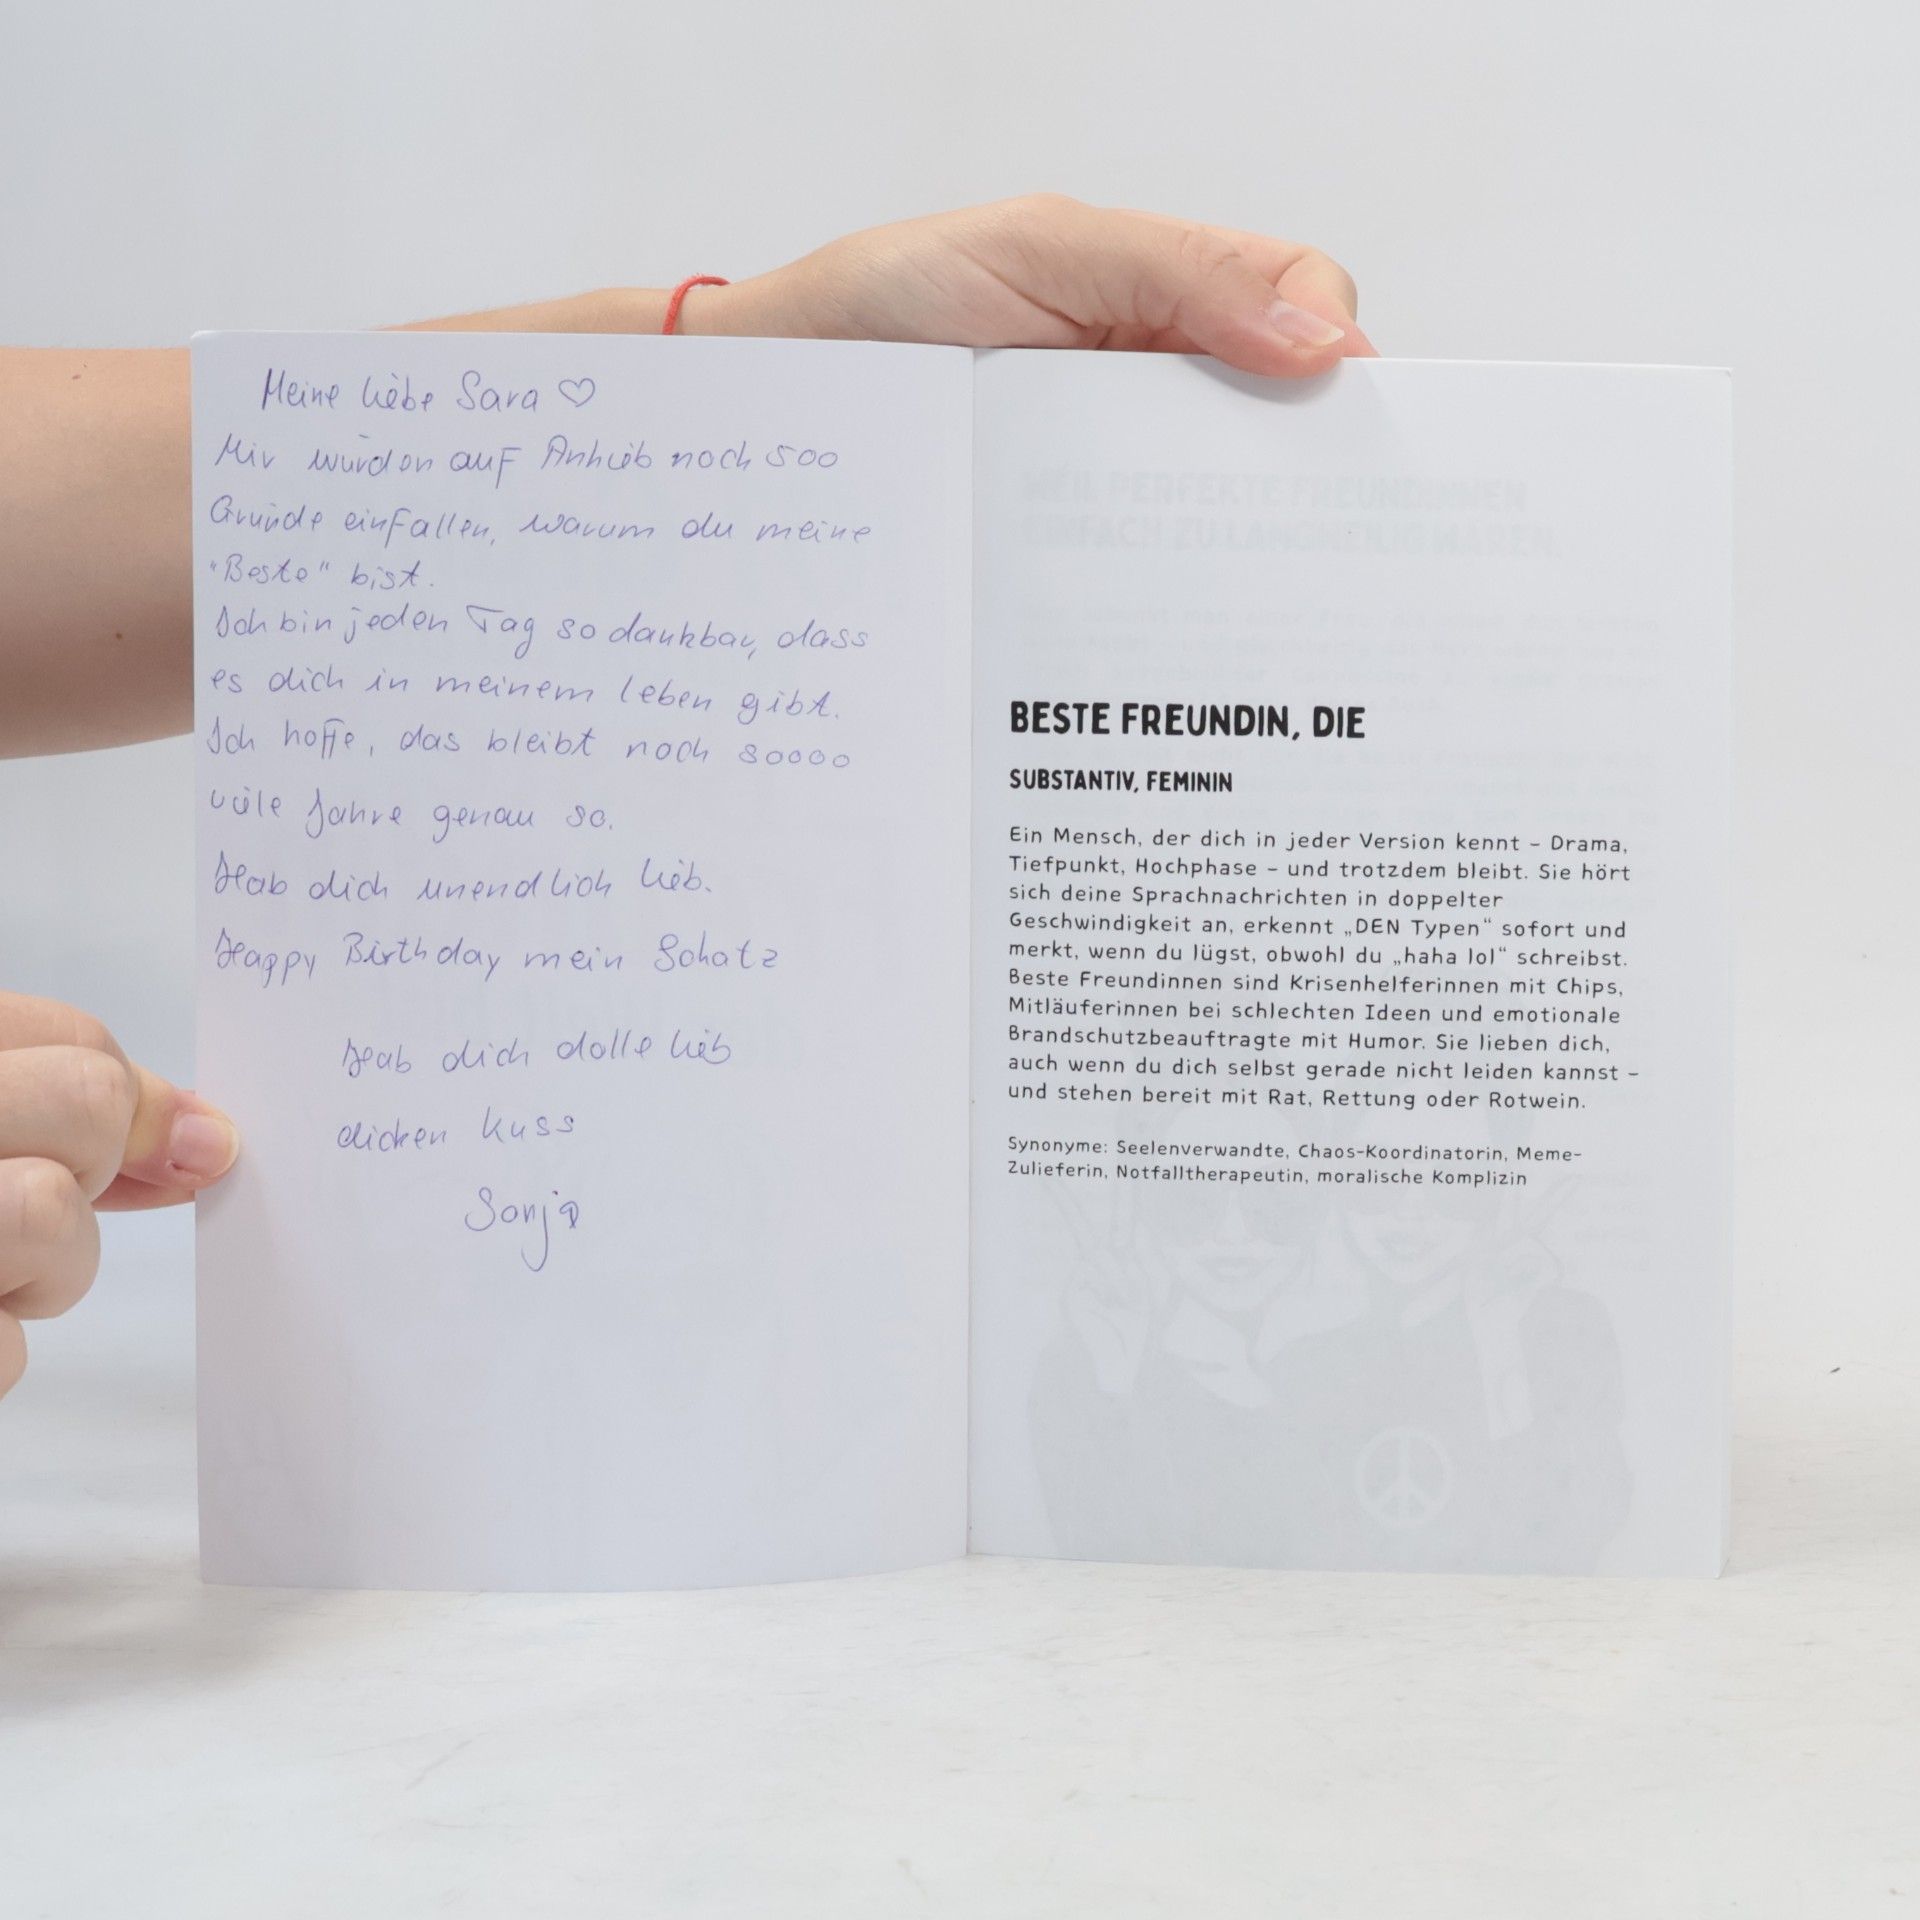 Meine liebe Sara ♡
Mir würden auf Anhieb noch 500
Gründe einfallen, warum du meine
"Beste" bist.
Ich bin jeden Tag so dankbar, dass
es dich in meinem Leben gibt.
Ich hoffe, das bleibt noch soooo
viele Jahre genau so.
Hab dich unendlich lieb.
Happy Birthday mein Schatz
Hab dich dolle lieb
dicken Kuss
Sonja
WEIL PERFEKTE FREUNDINNEN
EINFACH ZU LANGWEILIG WÄREN.
BESTE FREUNDIN, DIE
SUBSTANTIV, FEMININ
Ein Mensch, der dich in jeder Version kennt – Drama,
Tiefpunkt, Hochphase – und trotzdem bleibt. Sie hört
sich deine Sprachnachrichten in doppelter
Geschwindigkeit an, erkennt „DEN Typen“ sofort und
merkt, wenn du lügst, obwohl du „haha lol“ schreibst.
Beste Freundinnen sind Krisenhelferinnen mit Chips,
Mitläuferinnen bei schlechten Ideen und emotionale
Brandschutzbeauftragte mit Humor. Sie lieben dich,
auch wenn du dich selbst gerade nicht leiden kannst –
und stehen bereit mit Rat, Rettung oder Rotwein.
Synonyme: Seelenverwandte, Chaos-Koordinatorin, Meme-
Zulieferin, Notfalltherapeutin, moralische Komplizin